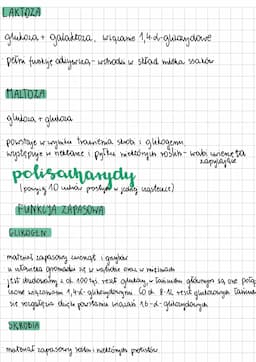 LAKTOZA
glukoza + galaktoza, wiązanie 1,4-α-glikozydowe
pełni funkcję odżywczą - wchodzi w skład mleka ssaków
MALTOZA
glukoza + glukoza
powstaje w wyniku trawienia skrobi i glikogenu
występuje w nektarze i pyłku niektórych roślin - wabi zwierzęta
zapylające
polisacharydy
(powyżej 10 cukrów prostych w jednej cząsteczce)
FUNKCJA ZAPASOWA
GLIKOGEN
materiał zapasowy zwierząt i grzybów
u człowieka gromadzi się w wątrobie oraz w mięśniach
jest zbudowany z ok. 100 tys. reszt glukozy, w łańcuchu głównym są one połą
czone wiązaniami 1,4-α-glikozydowymi. Co ok. 8-12 reszt glukozowych łańcuch
się rozgałęzia dzięki powstaniu wiązań 1,6-α-glikozydowych
SKROBIA
materiał zapasowy roślin i niektórych protistów